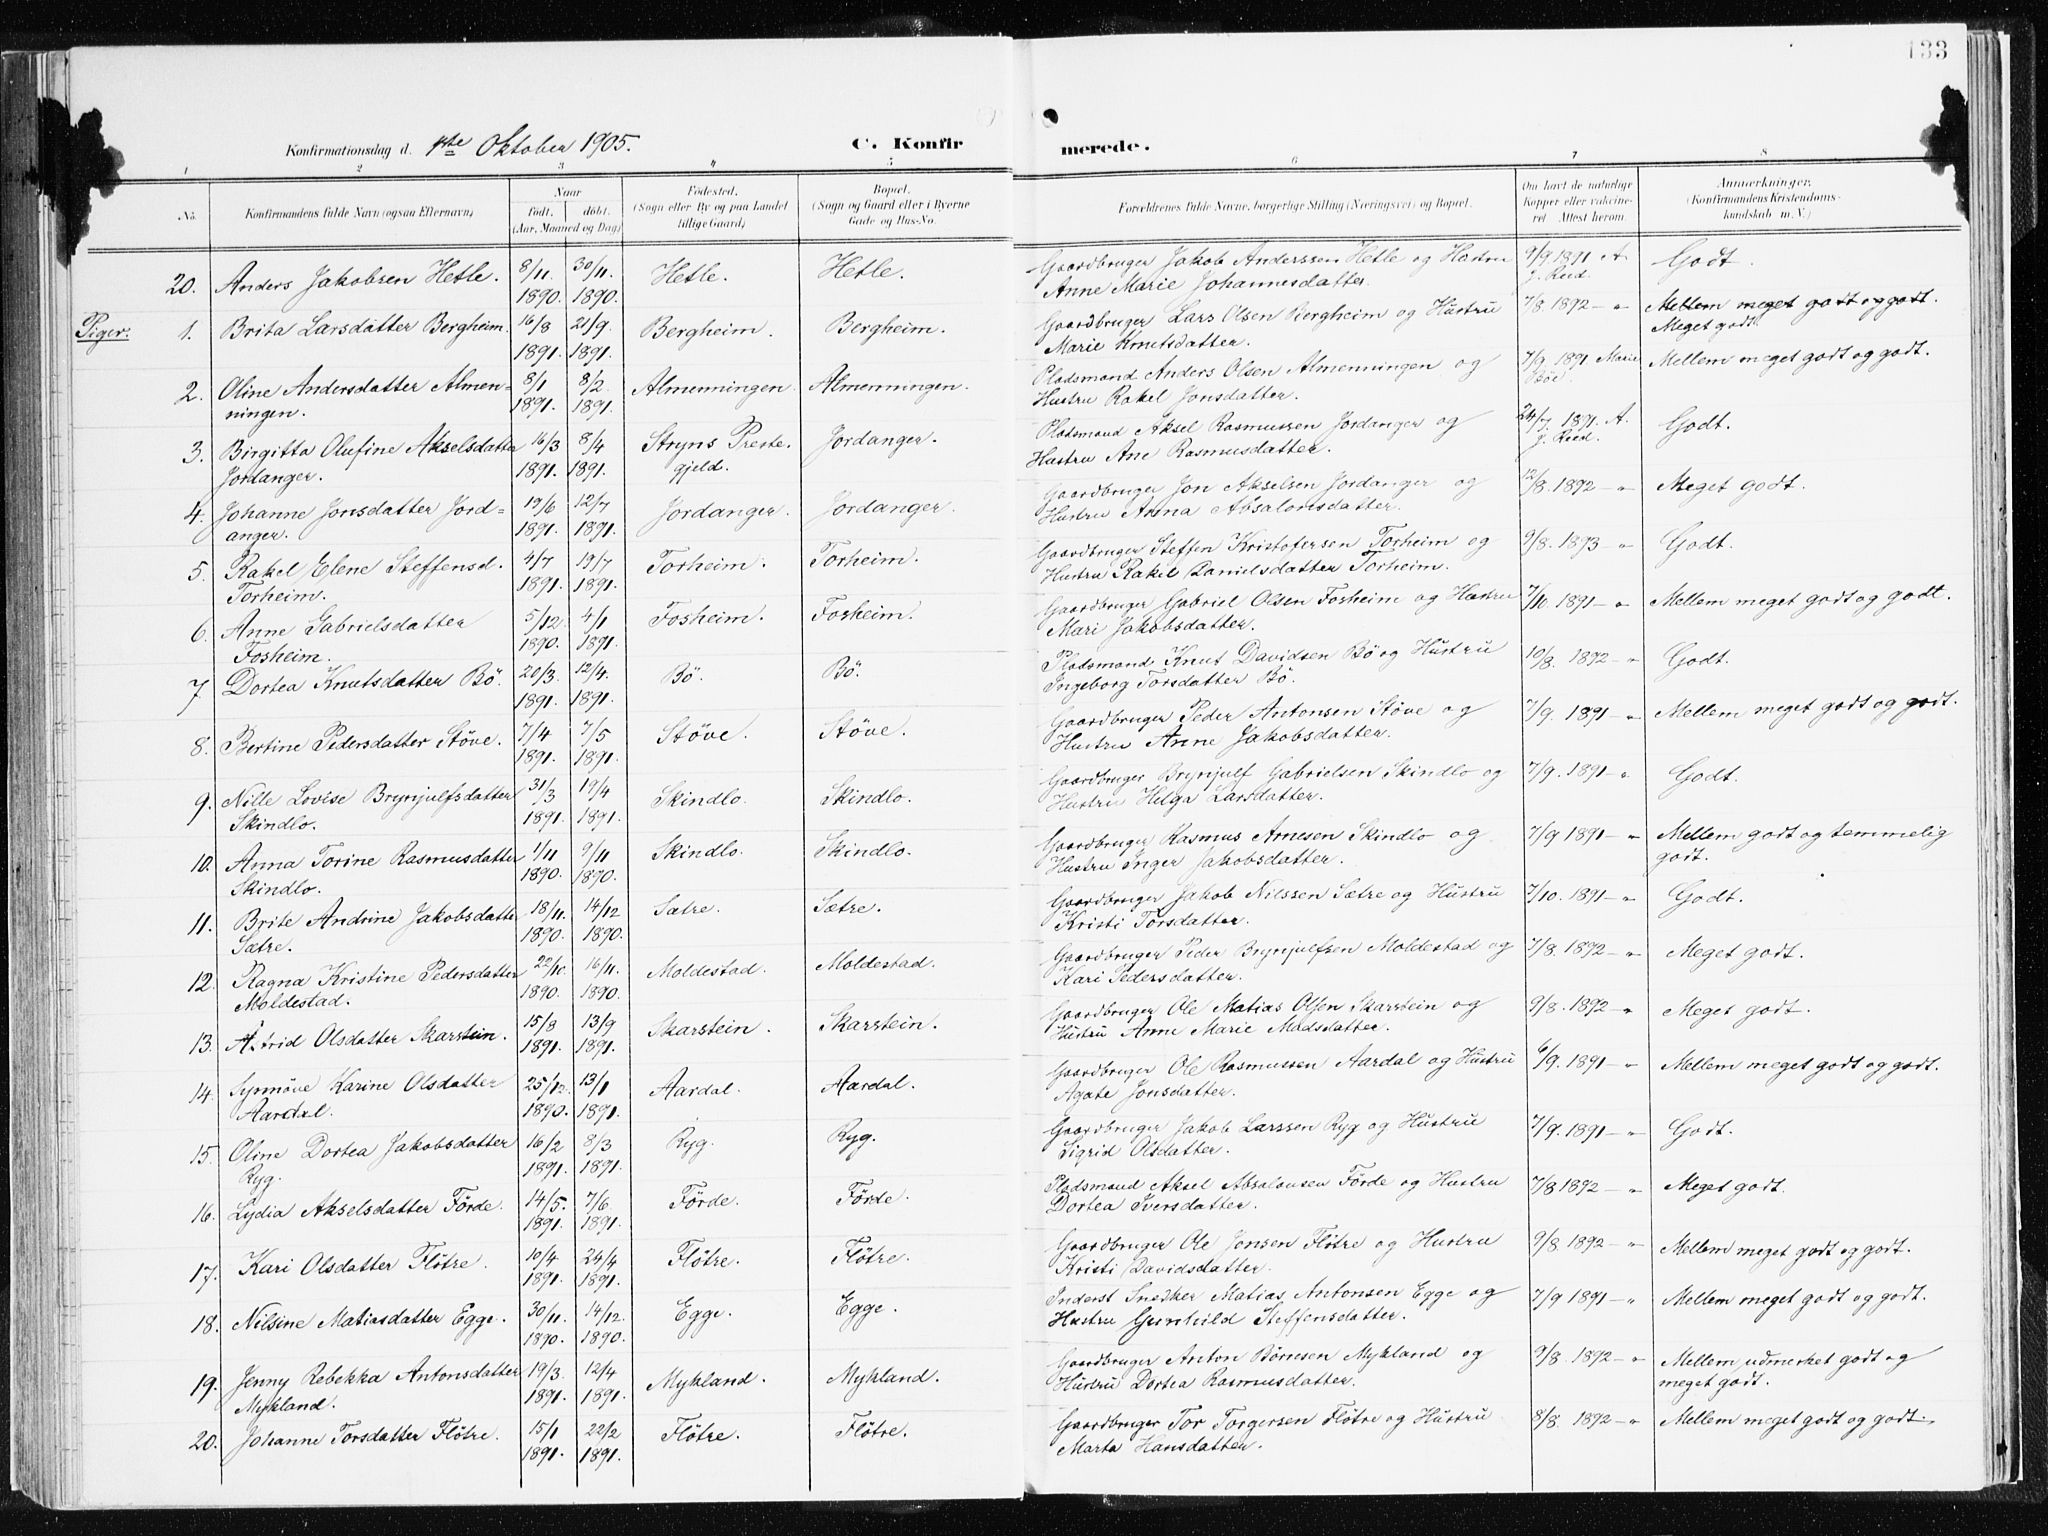 133
Konfirmationsdag d. 1ste Oktober 1905. C. Konfirmerede.
1 2 3 4 5 6 7 8
No. Konfirmandens fulde Navn (ogsaa Efternavn) Naar født, døbt, (Aar, Maaned og Dag) Fødested. (Sogn eller By og paa Landet tillige Gaard) Bopæl. (Sogn og Gaard eller i Byerne Gade og Hus-No. Forældrenes fulde Navne, borgerlige Stilling (Næringsvei) og Bopæl. Om havt de naturlige Kopper eller vaccineret. Attest herom. Anmærkninger. (Konfirmandens Kristendomskundskab m. V.)
20. Anders Jakobsen Hetle. 8/11 1890. 30/11. 1890. Hetle. Hetle. Gaardbruger Jakob Anderssen Hetle og Hustru 9/9 1891 A. Godt.
Anne Marie Johannesdatter. J. Reed
Piger:
1. Brita Larsdatter Bergheim. 16/8 1891. 21/9. 1891. Bergheim. Bergheim. Gaardbruger Lars Olsen Bergheim og Hustru 7/8. 1892 – " Mellem meget godt og godt.
Marie Knutsdatter. Meget godt
2. Oline Andersdatter Almen= 8/1 1891. 8/2. 1891. Almenningen. Almenningen. Pladsmand Anders Olsen Almenningen og 7/9. 1891 Marie Mellem meget godt og godt.
ningen. Hustru Rakel Jonsdatter. Böe.
3. Birgitta Olufine Akselsdatter 16/3 1891. 8/4 1891. Stryns Preste. Jordanger. Pladsmand Aksel Rasmussen Jordanger og 24/7. 1891. A. Godt.
Jordanger. gjeld. Hustru Ane Rasmusdatter. J. Reed.
4. Johanne Jonsdatter Jord= 19/6 1891. 12/7 1891. Jordanger. Jordanger. Gaardbruger Jon Akselsen Jordanger og 12/8. 1892 – " Meget godt.
anger. Hustru Anna Absalonsdatter.
5. Rakel Elene Steffensd. 4/7 1891. 19/7 1891. Torheim. Torheim. Gaardbruger Steffen Kristofersen Torheim og 9/8. 1893 – " Godt.
Torheim. Hustru Rakel Danielsdatter Torheim.
6. Anne Gabrielsdatter 5/12. 1890. 4/1 1891. Fosheim. Fosheim. Gaardbruger Gabriel Olsen Fosheim og Hustru 7/10. 1891 – " Mellem meget godt og godt.
Fosheim. Mari Jakobsdatter.
7. Dortea Knutsdatter Bö. 20/3. 1891. 12/4. 1891. Bö. Bö. Pladsmand Knut Davidsen Bö og Hustru 10/8. 1892 – " Godt.
Ingeborg Torsdatter Bö.
8. Bertine Pedersdatter Stöve. 7/4 1891. 7/5 1891. Stöve. Stöve. Gaardbruger Peder Antonsen Stöve og 7/9. 1891 – " Mellem meget godt og godt.
Hustru Anne Jakobsdatter.
9. Nille Lovise Brynjulfsdatter 31/3 1891. 19/4 1891. Skindlo. Skindlo. Gaardbruger Brynjulf Gabrielsen Skindlo og 7/9. 1891 – " Godt.
Skindlo. Hustru Helga Larsdatter.
10. Anna Torine Rasmusdatter 1/11 1890. 9/11 1890. Skindlo. Skindlo. Gaardbruger Rasmus Arnesen Skindlo og 7/9 1891 – " Mellem godt og temmelig
Skindlo. Hustru Inger Jakobsdatter. godt.
11. Brite Andrine Jakobsdatter 18/11. 1890. 14/12 1890. Sætre. Sætre. Gaardbruger Jakob Nilssen Sætre og Hustru 7/10. 1891 – " Godt.
Sætre. Kristi Torsdatter.
12. Ragna Kristine Pedersdatter 22/10. 1890. 16/11. 1890. Moldestad. Moldestad. Gaardbruger Peder Brynjulfsen Moldestad og 7/8. 1892 – " Meget godt.
Moldestad. Kari Pedersdatter.
13. Astrid Olsdatter Skarstein. 15/8 1891. 13/9 1891. Skarstein. Skarstein. Gaardbruger Ole Matias Olsen Skarstein og 9/8. 1892 – " Meget godt.
Hustru Anne Marie Madsdatter.
14. Synnöve Karine Olsdatter 25/12. 1890. 13/1 1891. Aardal. Aardal. Gaardbruger Ole Rasmussen Aardal og Hustru 6/9. 1891 – " Mellem meget godt og godt.
Aardal. Agate Jonsdatter.
15. Oline Dortea Jakobsdatter 16/2 1891. 8/3 1891. Ryg. Ryg. Gaardbruger Jakob Larssen Ryg og Hustru 7/9. 1891 – " Godt.
Ryg. Sigrid Olsdatter.
16. Lydia Akselsdatter Förde. 14/5. 1891. 7/6. 1891. Förde. Förde. Pladsmand Aksel Absalonsen Förde og Hustru 7/8 1892 – " Meget godt.
Dortea Iversdatter.
17. Kari Olsdatter Flötre. 10/4 1891. 24/4 1891. Flötre. Flötre. Gaardbruger Ole Jonsen Flötre og Hustru 9/8. 1892 – " Mellem meget godt og godt.
Kristi Davidsdatter.
18. Nilsine Matiasdatter Egge. 30/11. 1890. 14/12. 1890. Egge. Egge. Inderst Snedker Matias Antonsen Egge og 7/9 1891 – " Mellem meget godt og godt.
Hustru Gunhild Steffensdatter.
19. Jenny Rebekka Antonsdatter 19/3. 1891. 12/4 1891. Mykland. Mykland. Gaardbruger Anton Börresen Mykland og 9/8. 1892 – " Mellem udmerket godt og
Mykland. Hustru Dortea Rasmusdatter. meget godt.
20. Johanne Torsdatter Flötre. 15/1 1891. 22/2 1891. Flötre. Flötre. Gaardbruger Tor Torgersen Flötre og Hustru 8/8. 1892 – " Mellem meget godt og godt.
Marta Hansdatter.